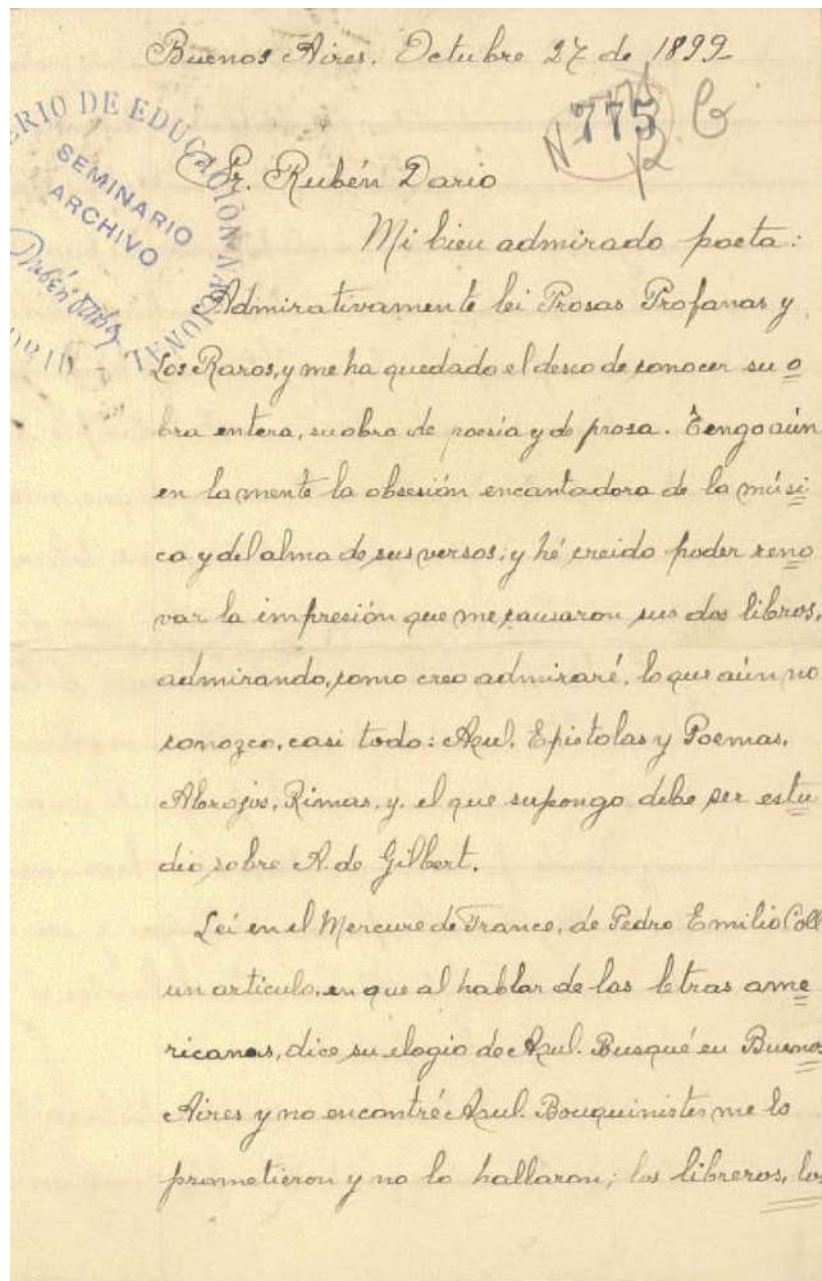 Buenos Aires. Octubre 27 de 1899
Nº 775
Sr. Rubén Dario
MINISTERIO DE EDUCACIÓN NACIONAL
SEMINARIO
ARCHIVO
Rubén Darío
MADRID
Mi bien admirado poeta:
Admirativamente leí Prosas Profanas y
Los Raros, y me ha quedado el deseo de conocer su o
bra entera, su obra de poesía y de prosa. Tengo aún
en la mente la obsesión encantadora de la músi
ca y del alma de sus versos; y hé creido poder reno
var la impresión que me causaron sus dos libros,
admirando, como creo admiraré, lo que aún no
conozco, casi todo: Azul. Epistolas y Poemas.
Abrojos, Rimas, y, el que supongo debe ser estu
dio sobre A. de Gilbert.
Leí en el Mercure de France, de Pedro Emilio Coll
un articulo, en que al hablar de las letras ame
ricanas, dice su elogio de Azul. Busqué en Buenos
Aires y no encontré Azul. Bouquinistes me lo
prometieron y no lo hallaron; los libreros, los